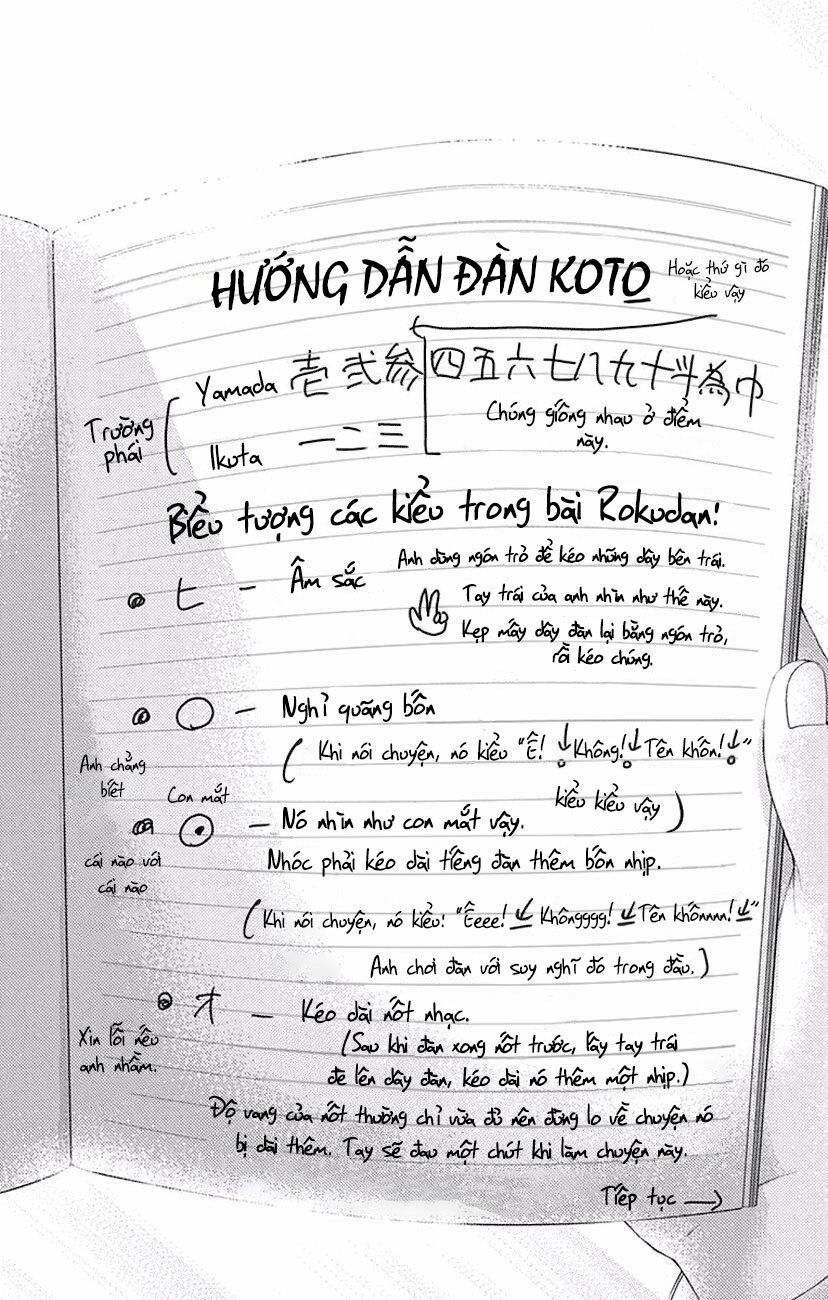 HƯỚNG DẪN ĐÀN KOTO
Hoặc thứ gì đó
kiểu vậy
Trường
phái
Yamada 壱 弐 参 四 五 六 七 八 九 十 斗 為 巾
Ikuta 一 二 三
Chúng giống nhau ở điểm
này.
Biểu tượng các kiểu trong bài Rokudan!
ヒ – Âm sắc
Anh dùng ngón trỏ để kéo những dây bên trái.
Tay trái của anh nhìn như thế này.
Kẹp mấy dây đàn lại bằng ngón trỏ,
rồi kéo chúng.
○ – Nghỉ quãng bốn
(Khi nói chuyện, nó kiểu "Ê! ↓ Không! ↓ Tên khốn! ↓"
kiểu kiểu vậy)
Anh chẳng
biết
cái nào với
cái nào
Con mắt
☉ – Nó nhìn như con mắt vậy.
Nhóc phải kéo dài tiếng đàn thêm bốn nhịp.
(Khi nói chuyện, nó kiểu: "Êeee! ↓ Khôngggg! ↓ Tên khốnnnn! ↓"
Anh chơi đàn với suy nghĩ đó trong đầu.)
オ – Kéo dài nốt nhạc.
(Sau khi đàn xong nốt trước, lấy tay trái
đè lên dây đàn, kéo dài nó thêm một nhịp.)
Xin lỗi nếu
anh nhầm.
Độ vang của nốt thường chỉ vừa đủ nên đừng lo về chuyện nó
bị dài thêm. Tay sẽ đau một chút khi làm chuyện này.
Tiếp tục →